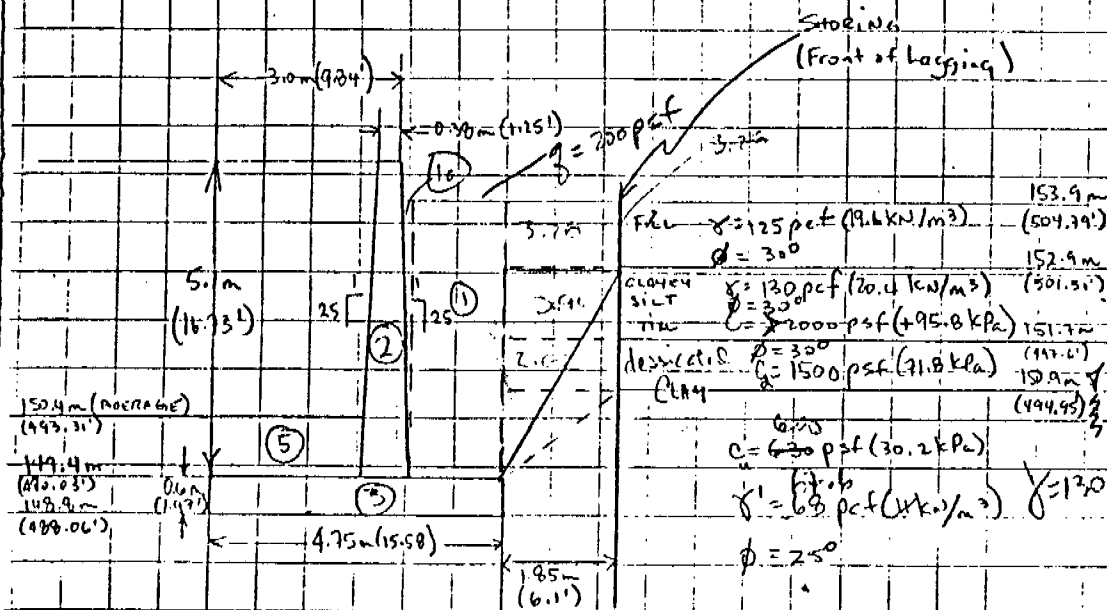 SHORING
(Front of Lagging)
3.0m (9.84')
0.38m (1.25')
q = 200 psf
10
3.7m
3.7m
153.9m
(504.79')
FILL γ=125 pcf (19.6 kN/m³)
φ = 30°
152.9m
(501.51')
5. m
(16.73')
1
25
1
25
1
2
CLAYEY
SILT
TILL
γ=130 pcf (20.4 kN/m³)
φ=30°
2000 psf (+95.8 kPa)
151.7m
dessicated
CLAY
φ=30°
1500 psf (71.8 kPa)
150.9m
(494.95')
150.4m (AVERAGE)
(493.31')
5
149.4m
(490.03')
148.8m
(488.06')
0.6m
(1.97')
3
4.75m (15.58)
1.85m
(6.1')
Cu = 630 psf (30.2 kPa)
γ' = 68 pcf (11 kN/m³)
γ=130
φ = 25°